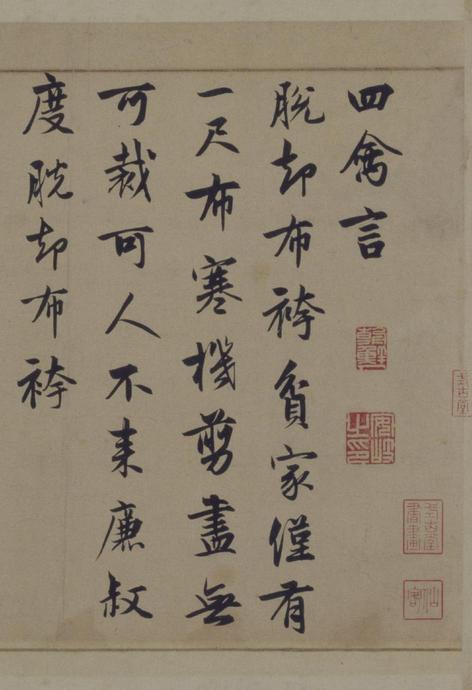 四禽言
脫却布袴貧家僅有
一尺布寒機剪盡無
可裁可人不来廉叔
度脫却布袴